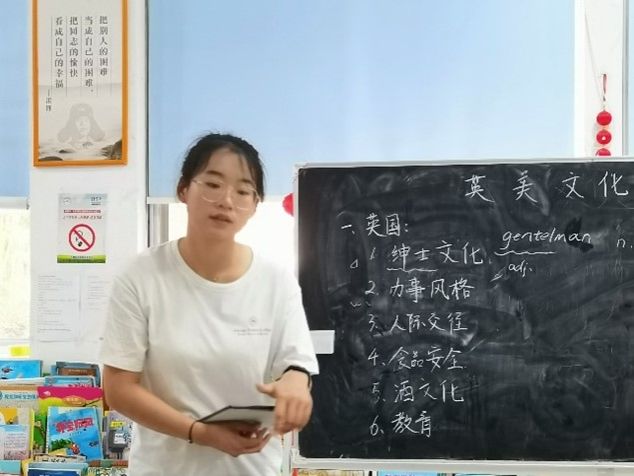 把别人的困难
当成自己的困难，
把同志的愉快
看成自己的幸福
——雷锋
英美文化
一、英国:
1 绅士文化. gentelman n.
adj.
2. 办事风格
3. 人际交往
4. 食品安全
5. 酒文化
6、教育